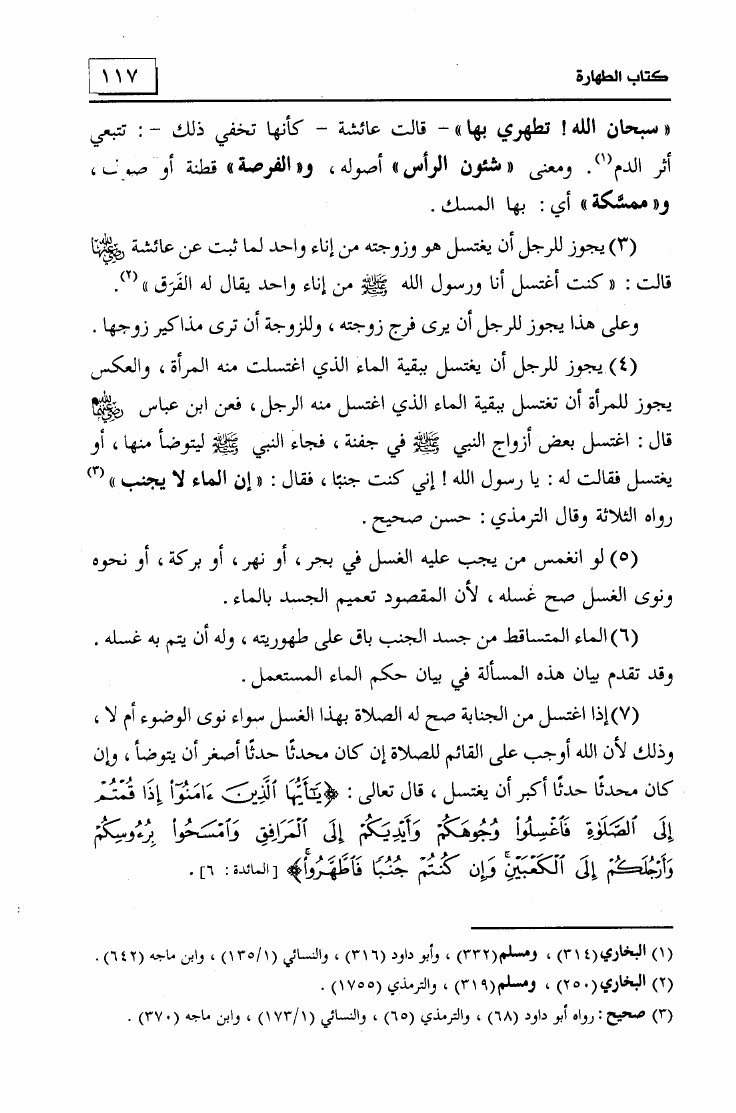 كتاب الطهارة
١١٧
« سبحان الله ! تطهري بها » – قالت عائشة – كأنها تخفي ذلك – : تتبعي
أثر الدم(١). ومعنى « شئون الرأس » أصوله ، و« الفرصة » قطنة أو ،
و« ممسَّكة » أي : بها المسك .
(٣) يجوز للرجل أن يغتسل هو وزوجته من إناء واحد لما ثبت عن عائشة رضي الله عنها
قالت : « كنت أغتسل أنا ورسول الله ﷺ من إناء واحد يقال له الفَرَق »(٢).
وعلى هذا يجوز للرجل أن يرى فرج زوجته ، وللزوجة أن ترى مذاكير زوجها .
(٤) يجوز للرجل أن يغتسل ببقية الماء الذي اغتسلت منه المرأة ، والعكس
يجوز للمرأة أن تغتسل ببقية الماء الذي اغتسل منه الرجل ، فعن ابن عباس رضي الله عنهما
قال : اغتسل بعض أزواج النبي ﷺ في جفنة ، فجاء النبي ﷺ ليتوضأ منها ، أو
يغتسل فقالت له : يا رسول الله ! إني كنت جنبًا ، فقال : « إن الماء لا يجنب »(٣)
رواه الثلاثة وقال الترمذي : حسن صحيح .
(٥) لو انغمس من يجب عليه الغسل في بحر ، أو نهر ، أو بركة ، أو نحوه
ونوى الغسل صح غسله ، لأن المقصود تعميم الجسد بالماء .
(٦) الماء المتساقط من جسد الجنب باق على طهوريته ، وله أن يتم به غسله .
وقد تقدم بيان هذه المسألة في بيان حكم الماء المستعمل .
(٧) إذا اغتسل من الجنابة صح له الصلاة بهذا الغسل سواء نوى الوضوء أم لا ،
وذلك لأن الله أوجب على القائم للصلاة إن كان محدثًا حدثًا أصغر أن يتوضأ ، وإن
كان محدثًا حدثًا أكبر أن يغتسل ، قال تعالى : ﴿يَٰٓأَيُّهَا ٱلَّذِينَ ءَامَنُوٓا۟ إِذَا قُمْتُمْ
إِلَى ٱلصَّلَوٰةِ فَٱغْسِلُوا۟ وُجُوهَكُمْ وَأَيْدِيَكُمْ إِلَى ٱلْمَرَافِقِ وَٱمْسَحُوا۟ بِرُءُوسِكُمْ
وَأَرْجُلَكُمْ إِلَى ٱلْكَعْبَيْنِ ۚ وَإِن كُنتُمْ جُنُبًا فَٱطَّهَّرُوا۟ ۚ﴾ [المائدة : ٦] .
(١) البخاري (٣١٤) ، ومسلم (٣٣٢) ، وأبو داود (٣١٦) ، والنسائي (١٣٥/١) ، وابن ماجه (٦٤٢) .
(٢) البخاري (٢٥٠) ، ومسلم (٣١٩) ، والترمذي (١٧٥٥) .
(٣) صحيح : رواه أبو داود (٦٨) ، والترمذي (٦٥) ، والنسائي (١٧٣/١) ، وابن ماجه (٣٧٠) .